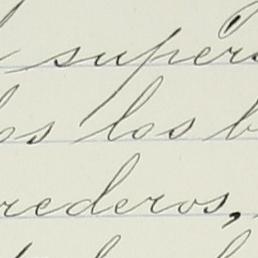 supers
os los b
rederos,